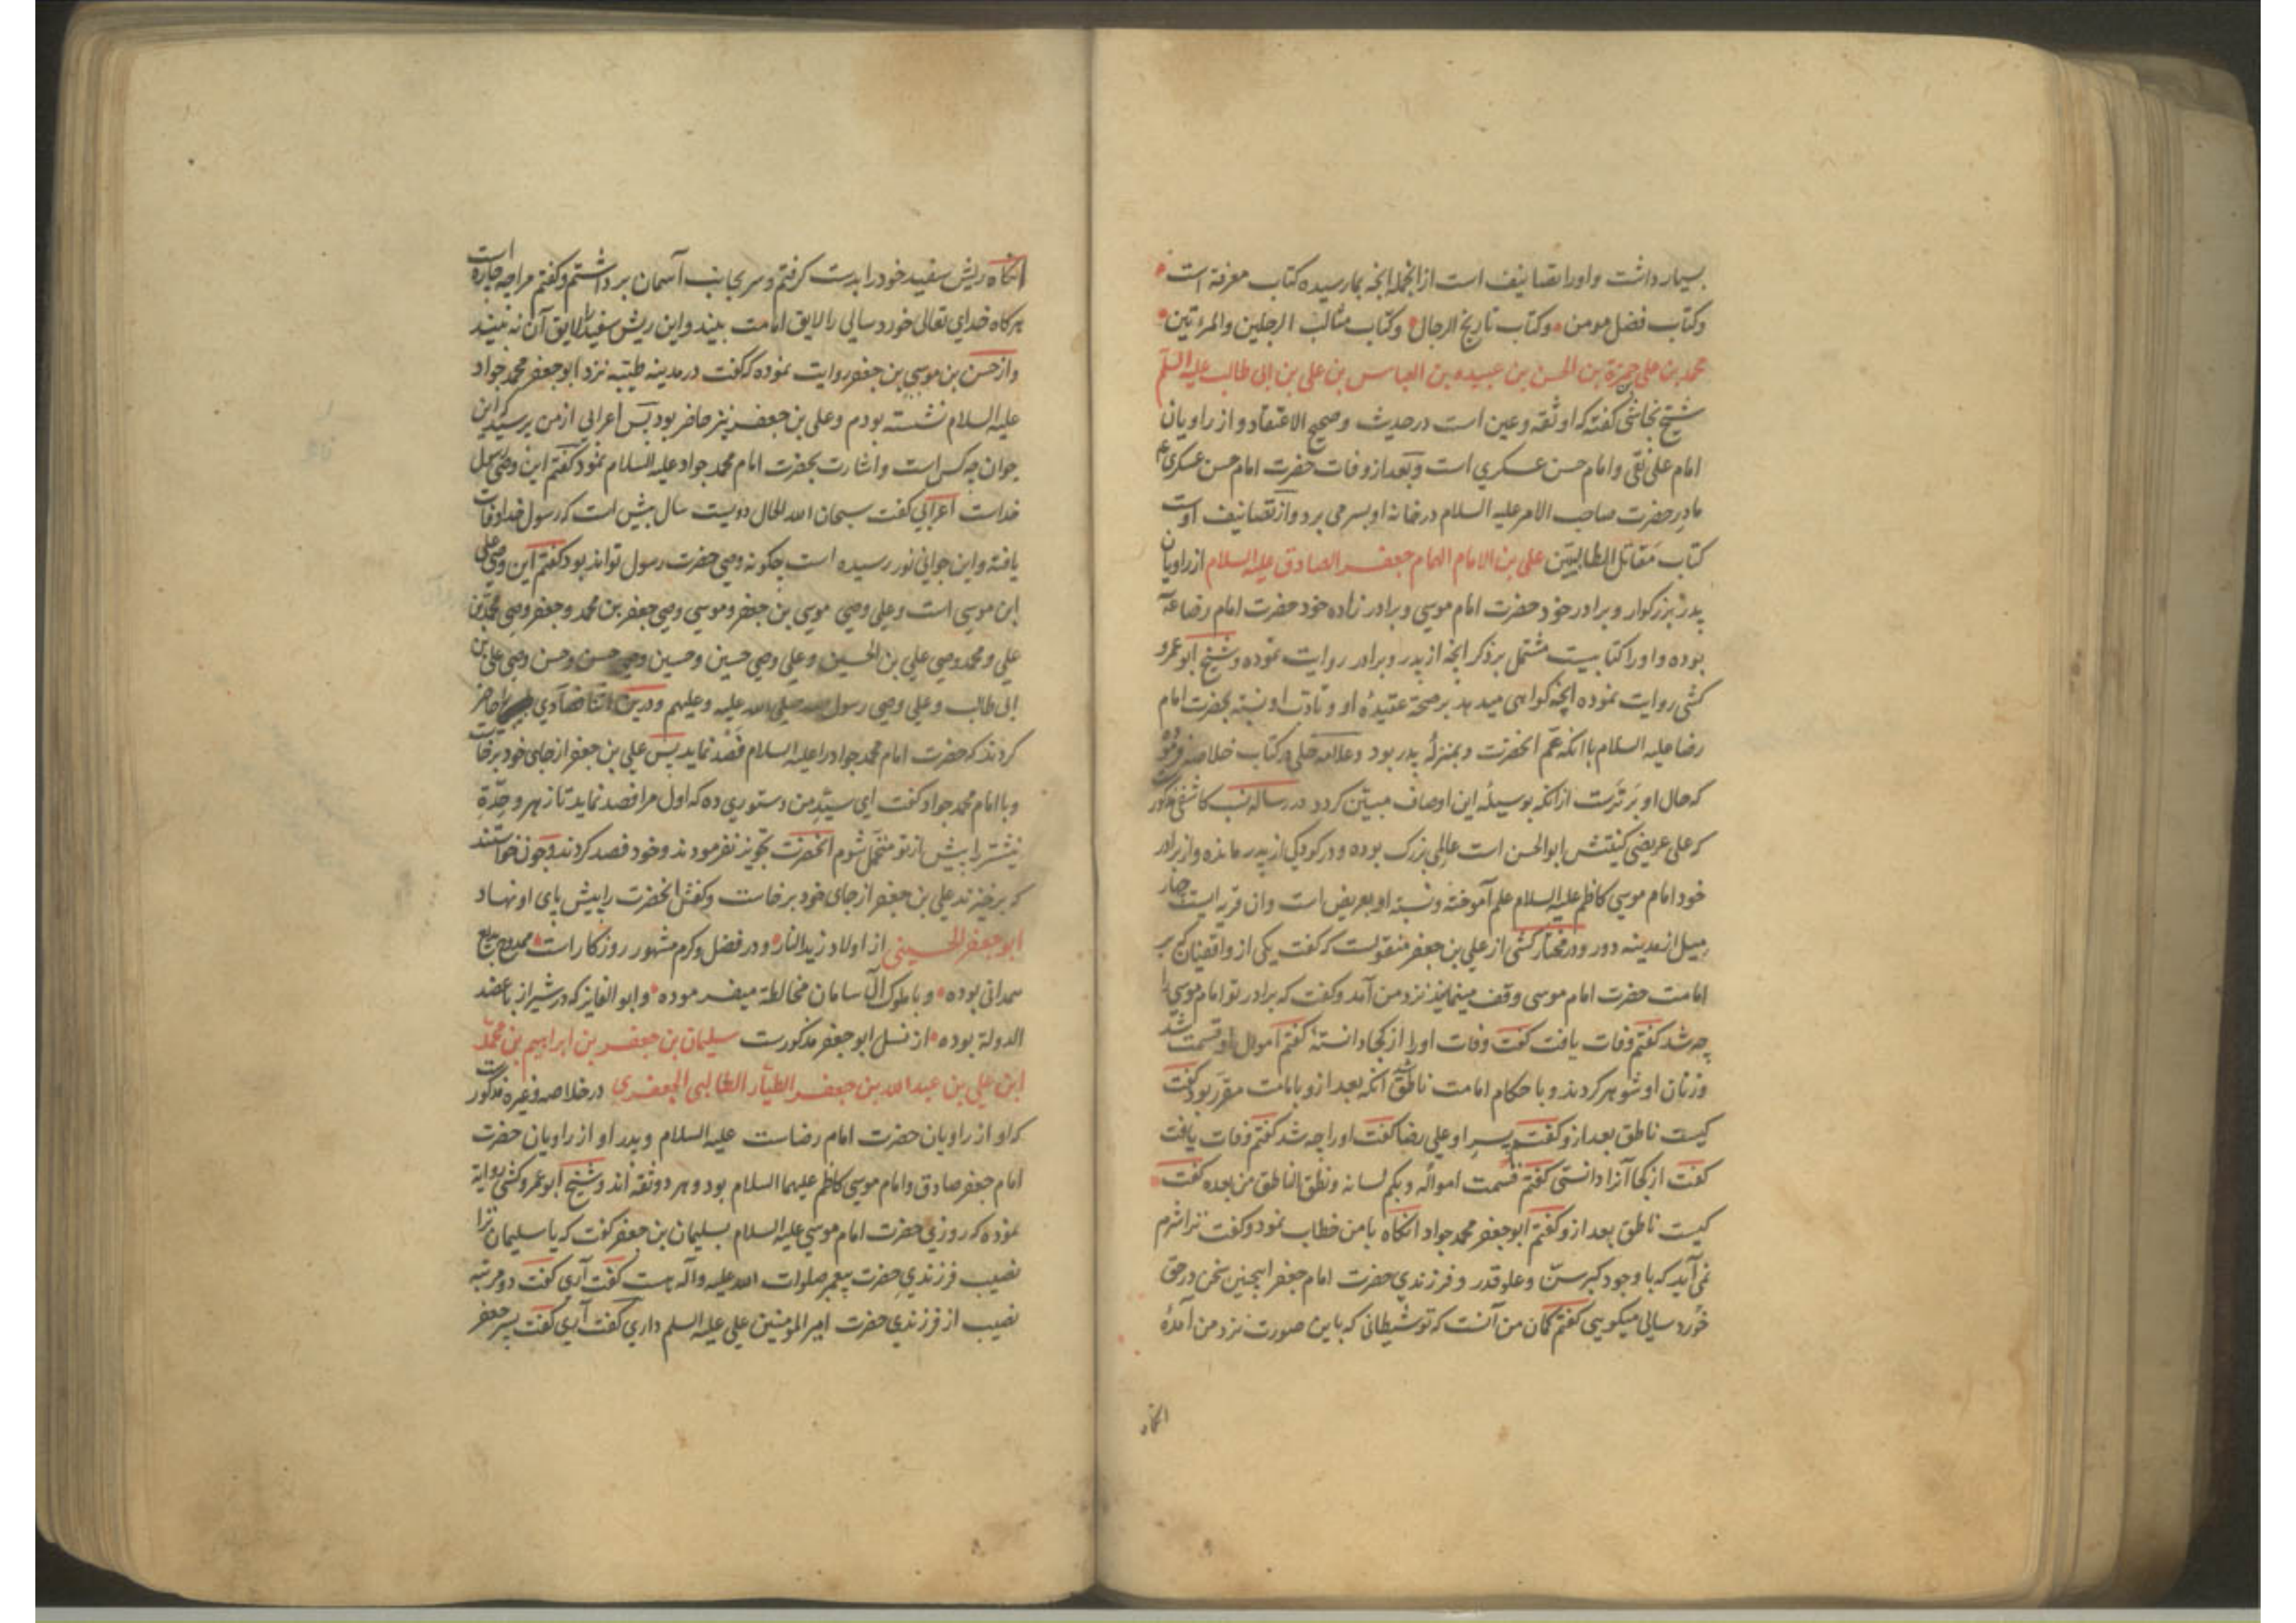 بسیار داشت و او را تصانیف است از انجمله انچه بما رسیده کتاب معرفة است
و کتاب فضل مومن و کتاب تاریخ الرجال و کتاب مثالب الرجلین والمرءتین
محمد بن علی حمزة بن الحسن بن عبیده بن العباس بن علی بن ابی طالب علیه السلم
شیخ نجاشی کفته که او ثقه و عین است در حدیث و صحیح الاعتقاد و از راویان
امام علی نقی و امام حسن عسکری است و بعد از وفات حضرت امام حسن عسکری ع
مادر حضرت صاحب الامر علیه السلام در خانه او بسر می برد و از تصانیف اوست
کتاب مقاتل الطالبیین علی بن الامام الهمام جعفر الصادق علیه السلام از راویان
پدر بزرکوار و برادر خود حضرت امام موسی و برادر زاده خود حضرت امام رضا ع
بوده و او را کتابیست مشتمل بر ذکر انچه از پدر و برادر روایت نموده و شیخ ابو عمرو
کشی روایت نموده انچه کواهی میدهد بر صحة عقیدهٔ او و تادب او نسبته بحضرت امام
رضا علیه السلام با انکه عم انحضرت و بمنزلهٔ پدر بود و علامه حلی در کتاب خلاصه فرموده
که حال او برترست از انکه بوسیلهٔ این اوصاف مبین کردد در رساله نسب کاشفی مذکورست
که علی عریضی کنیتش ابوالحسن است عالمی بزرک بوده و در کودکی از پدر مانده و از برادر
خود امام موسی کاظم علیه السلام علم آموخته و نسبته او بعریض است و ان قریه ایست چهار
میل از مدینه دور و در مختار کشی از علی بن جعفر منقولست که کفت یکی از واقفیان که بر
امامت حضرت امام موسی وقف مینمایند نزد من آمد و کفت که برادر تو امام موسی را
چه شد کفتم وفات یافت کفت وفات او را از کجا دانستهٔ کفتم اموال او قسمت شد
و زنان او شوهر کردند و با حکام امامت ناطق شد انکه بعد از و بامامت مقرر بود کفت
کیست ناطق بعد از و کفتم پسر او علی رضا کفت او را چه شد کفتم وفات یافت
کفت از کجا آنرا دانستی کفتم قسمت امواله و بکم لسانه و نطق الناطق من بعده کفت
کیست ناطق بعد از و کفتم ابو جعفر محمد جواد انکاه با من خطاب نمود و کفت ترا شرم
نمی آید که با وجود کبر سن و علو قدر و فرزندی حضرت امام جعفر اینچنین سخن در حق
خورد سالی میکویی کفتم کمان من آنست که تو شیطانی که باین صورت نزد من آمدهٔ
انکاه
انکاه ریش سفید خود را بدست کرفتم و سر بجانب آسمان برداشتم و کفتم مرا چه چاره است
هر کاه خدای تعالی خورد سالی را لایق امامت بیند و این ریش سفید را لایق آن نه بیند
و از حسن بن موسی بن جعفر روایت نموده که کفت در مدینه طیبه نزد ابو جعفر محمد جواد
علیه السلام نشسته بودم و علی بن جعفر نیز حاضر بود پس اعرابی از من پرسید که این
جوان چه کس است و اشارت بحضرت امام محمد جواد علیه السلام نمود کفتم این وصی رسول
خداست اعرابی کفت سبحان الله الحال دویست سال پیش است که رسول خدا وفات
یافته و این جوانی نو رسیده است چکونه وصی حضرت رسول تواند بود کفتم این وصی علی
ابن موسی است و علی وصی موسی بن جعفر و موسی وصی جعفر بن محمد و جعفر وصی محمد بن
علی و محمد وصی علی بن الحسین و علی وصی حسین و حسین وصی حسن و حسن وصی علی بن
ابی طالب و علی وصی رسول الله صلی الله علیه و علیهم و درین اثنا فصادی را حاضر
کردند که حضرت امام محمد جواد را علیه السلام فصد نماید پس علی بن جعفر از جای خود برخاست
و با امام محمد جواد کفت ای سید من دستوری ده که اول مرا فصد نماید تا زهر و حدة
نیشتر را پیش از تو متحمل شوم انحضرت تجویز نفرمودند و خود فصد کردند و چون خواستند
که برخیزند علی بن جعفر از جای خود برخاست و کفش انحضرت را پیش پای او نهاد
ابو جعفر الحسینی از اولاد زید النار و در فضل و کرم مشهور روزکار است ممدوح بدیع
همدانی بوده و با ملوک آل سامان مخالطه میفرموده و ابو الفایز که در شیراز با عضد
الدوله بوده از نسل ابو جعفر مذکورست سلیمان بن جعفر بن ابراهیم بن محمد
ابن علی بن عبد الله بن جعفر الطیار الطالبی الجعفری در خلاصه و غیره مذکورست
که او از راویان حضرت امام رضاست علیه السلام و پدر او از راویان حضرت
امام جعفر صادق و امام موسی کاظم علیهما السلام بود و هر دو ثقه اند و شیخ ابو عمرو کشی روایة
نموده که روزی حضرت امام موسی علیه السلام بسلیمان بن جعفر کفت که یا سلیمان ترا
نصیب فرزندی حضرت پیغمبر صلوات الله علیه و آله هست کفت آری کفت دو مرتبه
نصیب از فرزندی حضرت امیر المومنین علی علیه السلم داری کفت آری کفت پسر جعفر